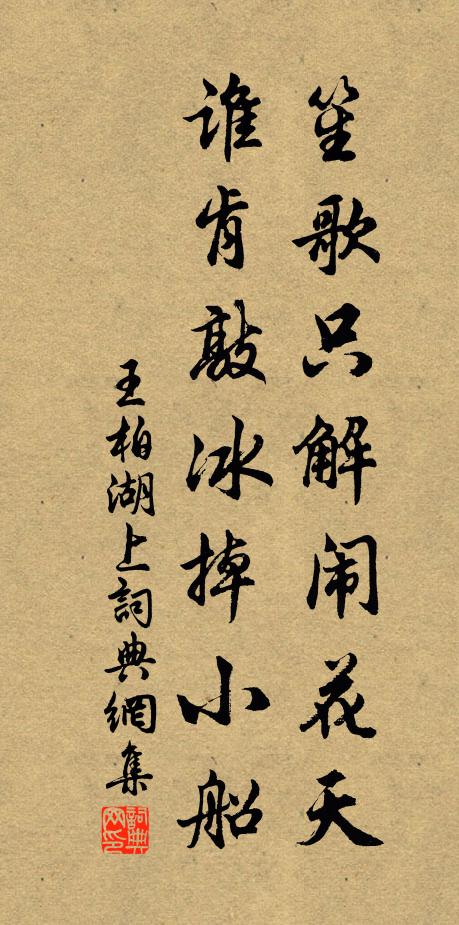 笙歌只解闹花天
谁肯敲冰掉小船
王柏湖上詞典網集
詞典网印